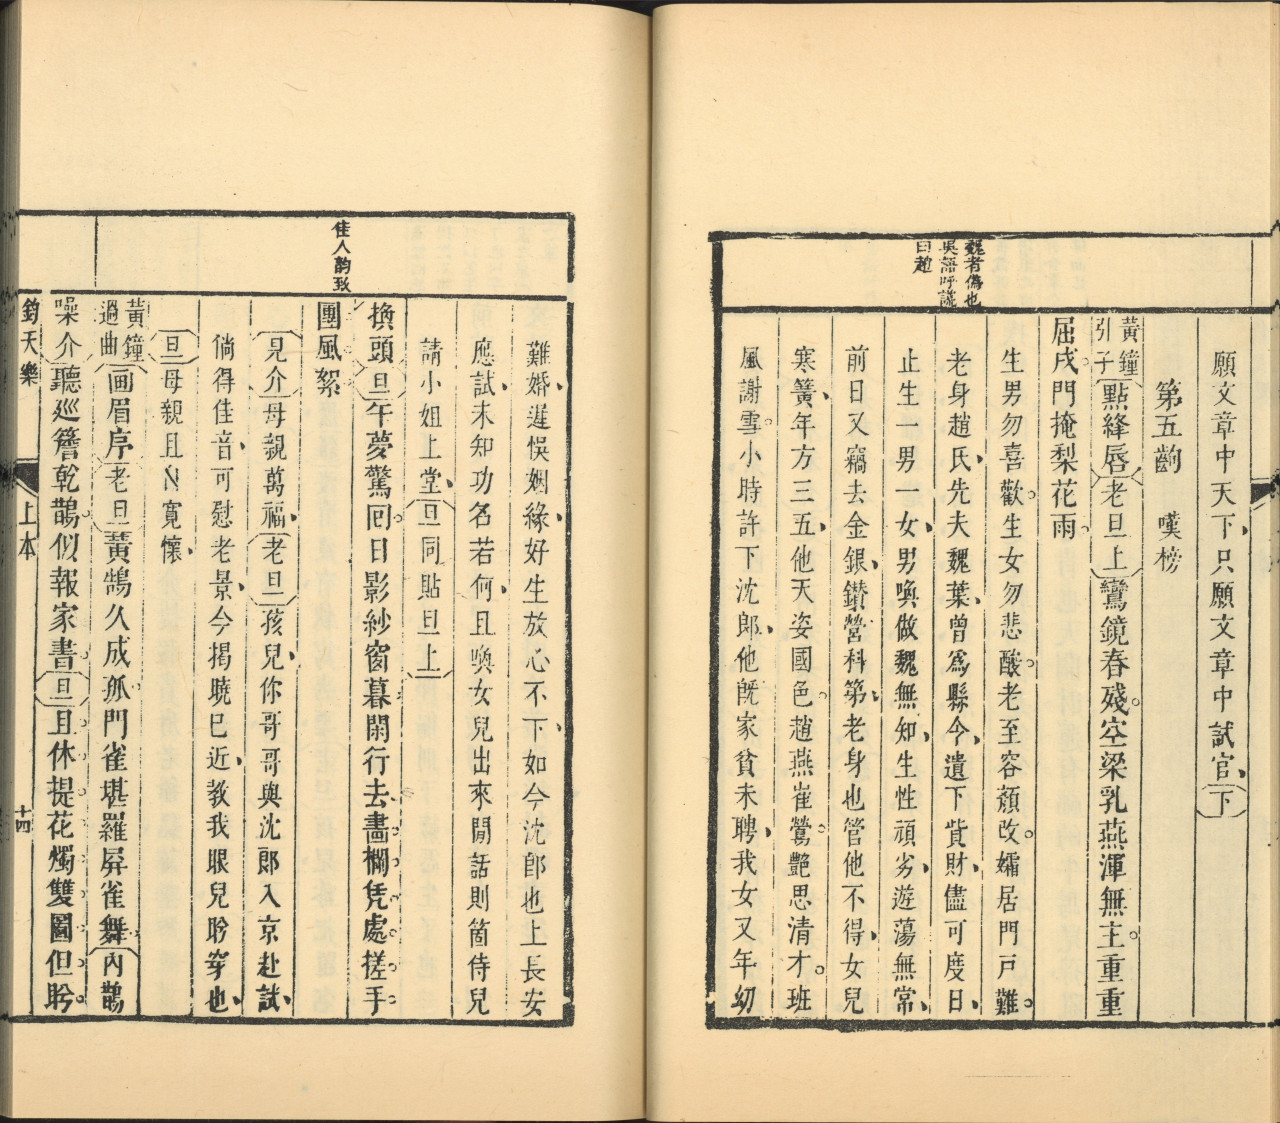 願文章中天下只願文章中試官下
第五齣 嘆榜
黃鐘引子點絳唇老旦上鸞鏡春殘空梁乳燕渾無主重重
屈戌門掩梨花雨
生男勿喜歡生女勿悲酸老至容顏改孀居門戶難
老身趙氏先夫魏葉曾爲縣令遺下貲財儘可度日
止生一男一女男喚做魏無知生性頑劣遊蕩無常
前日又竊去金銀鑚營科第老身也管他不得女兒
寒簧年方三五他天姿國色趙燕崔鶯艷思清才班
風謝雪小時許下沈郎他旣家貧未聘我女又年幼
魏者僞也
吳語呼謊
曰趙
難婚遲悞姻緣好生放心不下如今沈郎也上長安
應試未知功名若何且喚女兒出來閒話則箇侍兒
請小姐上堂旦同貼旦上
換頭旦午夢驚囘日影紗窗暮閑行去畵欄凭處搓手
團風絮
見介母親萬福老旦孩兒你哥哥與沈郎入京赴試
倘得佳音可慰老景今揭曉已近教我眼兒盻穿也
旦母親且寬懷
黃鐘過曲画眉序老旦黃鵠久成孤門雀堪羅屏雀舞內鵲
噪介聽巡簷乾鵲似報家書旦且休提花燭雙圖但盻
佳人韵致
鈞天樂 上本 十四